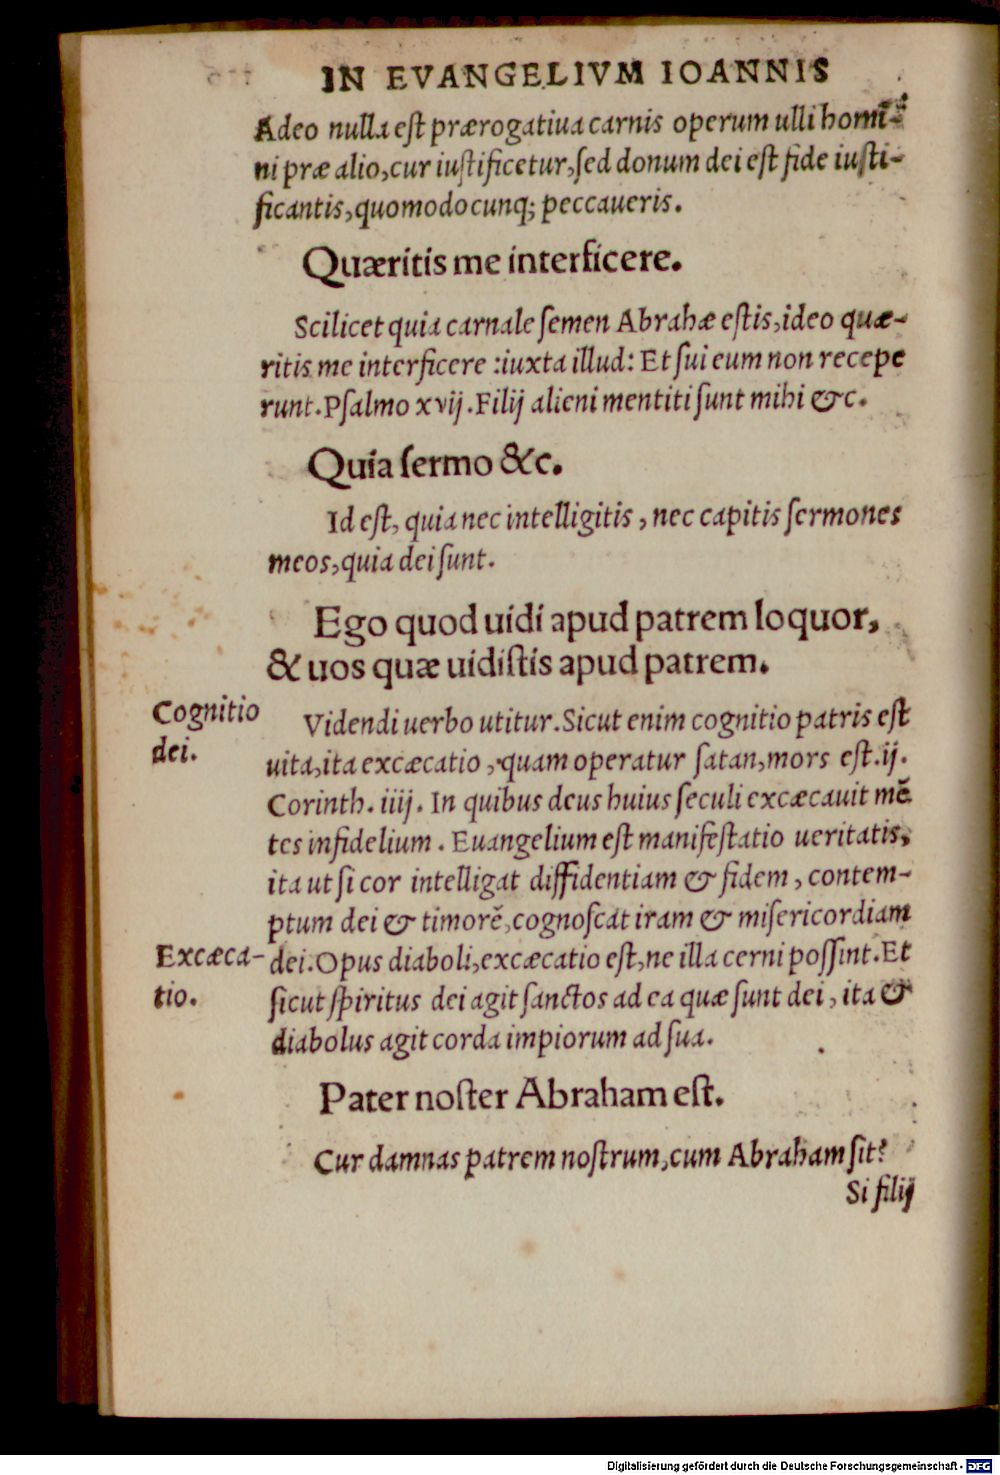 IN EVANGELIVM IOANNIS
Adeo nulla eſt prærogatiua carnis operum ulli homi-
ni præ alio, cur iuſtificetur, ſed donum dei eſt fide iuſti-
ficantis, quomodocunq; peccaueris.
Quæritis me interficere.
Scilicet quia carnale ſemen Abrahæ eſtis, ideo quæ-
ritis me interficere : iuxta illud: Et ſui eum non recepe
runt. Pſalmo xvij. Filij alieni mentiti ſunt mihi &c.
Quia ſermo &c.
Id eſt, quia nec intelligitis, nec capitis ſermones
meos, quia dei ſunt.
Ego quod uidi apud patrem loquor,
& uos quæ uidiſtis apud patrem.
Cognitio
dei.
Videndi uerbo utitur. Sicut enim cognitio patris eſt
uita, ita excæcatio, quam operatur ſatan, mors eſt. ij.
Corinth. iiij. In quibus deus huius ſeculi excæcauit mē
tes infidelium. Euangelium eſt manifeſtatio ueritatis,
ita ut ſi cor intelligat diffidentiam & fidem, contem-
ptum dei & timorē, cognoſcat iram & miſericordiam
Excæca-
tio.
dei. Opus diaboli, excæcatio eſt, ne illa cerni poſſint. Et
ſicut ſpiritus dei agit ſanctos ad ea quæ ſunt dei, ita &
diabolus agit corda impiorum ad ſua.
Pater noſter Abraham eſt.
Cur damnas patrem noſtrum, cum Abraham ſit?
Si filij
Digitalisierung gefördert durch die Deutsche Forschungsgemeinschaft - DFG